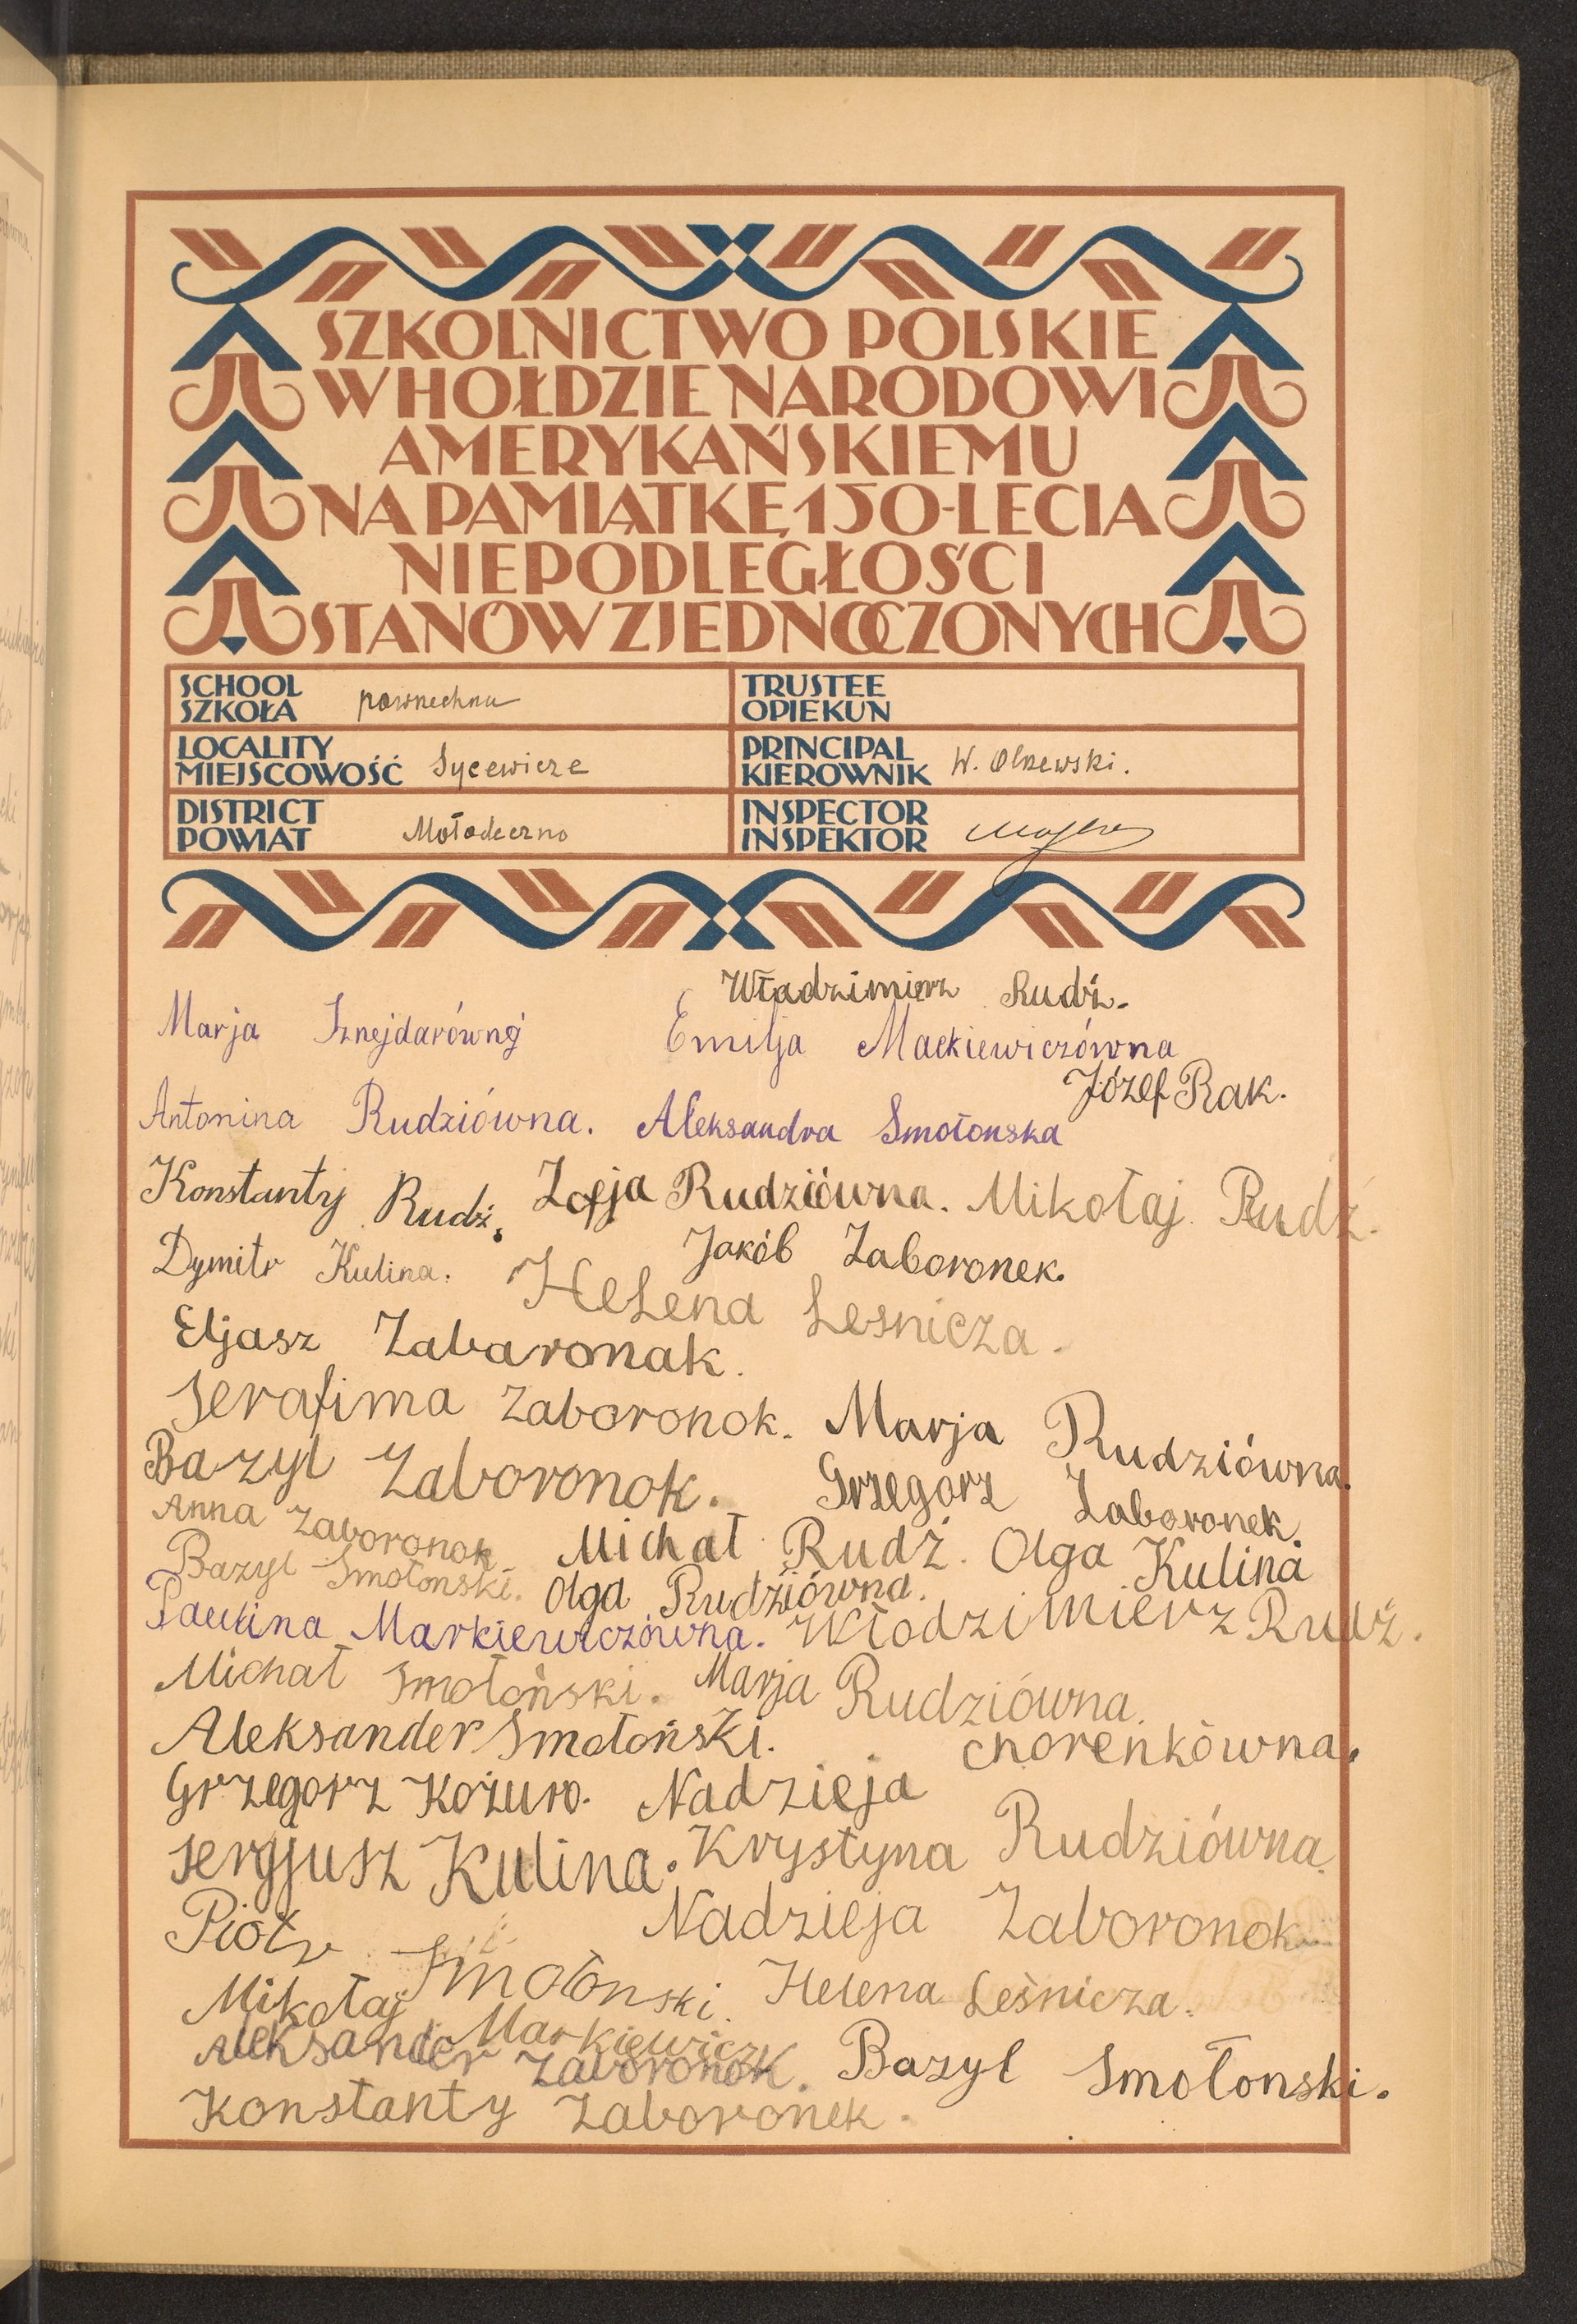 SZKOLNICTWO POLSKIE
W HOŁDZIE NARODOWI
AMERYKAŃSKIEMU
NA PAMIĄTKĘ 150-LECIA
NIEPODLEGŁOŚCI
STANÓW ZJEDNOCZONYCH
SCHOOL
SZKOŁA powszechna
TRUSTEE
OPIEKUN
LOCALITY
MIEJSCOWOŚĆ Sycewicze
PRINCIPAL
KIEROWNIK W. Olszewski.
DISTRICT
POWIAT Mołodeczno
INSPECTOR
INSPEKTOR
Władzimierz Rudź.
Marja Sznejdarówną Emilja Mackiewiczówna
Józef Rak.
Antonina Rudziówna. Aleksandra Smołonska
Konstanty Rudź. Zofja Rudziówna. Mikołaj Rudź.
Dymitr Kulina. Jakób Zaboronek.
Helena Lesnicza.
Eljasz Zabaronak.
Serafima Zaboronok. Marja Rudziówna.
Bazyl Zaboronok. Grzegorz Zaboronek.
Anna Zaboronok. Michał Rudź. Olga Kulina
Bazyl Smołonski. Olga Rudziówna.
Paulina Markiewiczówna. Włodzimierz Rudź.
Michał Smołoński. Marja Rudziówna.
Aleksander Smołoński. Chorenkówna.
Grzegorz Kożuro. Nadzieja
Sergjusz Kulina. Krystyna Rudziówna.
Piotr Smołonski. Nadzieja Zaboronok
Mikołaj Markiewicz. Helena Leśnicza.
Aleksander Zaboronok. Bazyl Smołonski.
Konstanty Zaboronek.